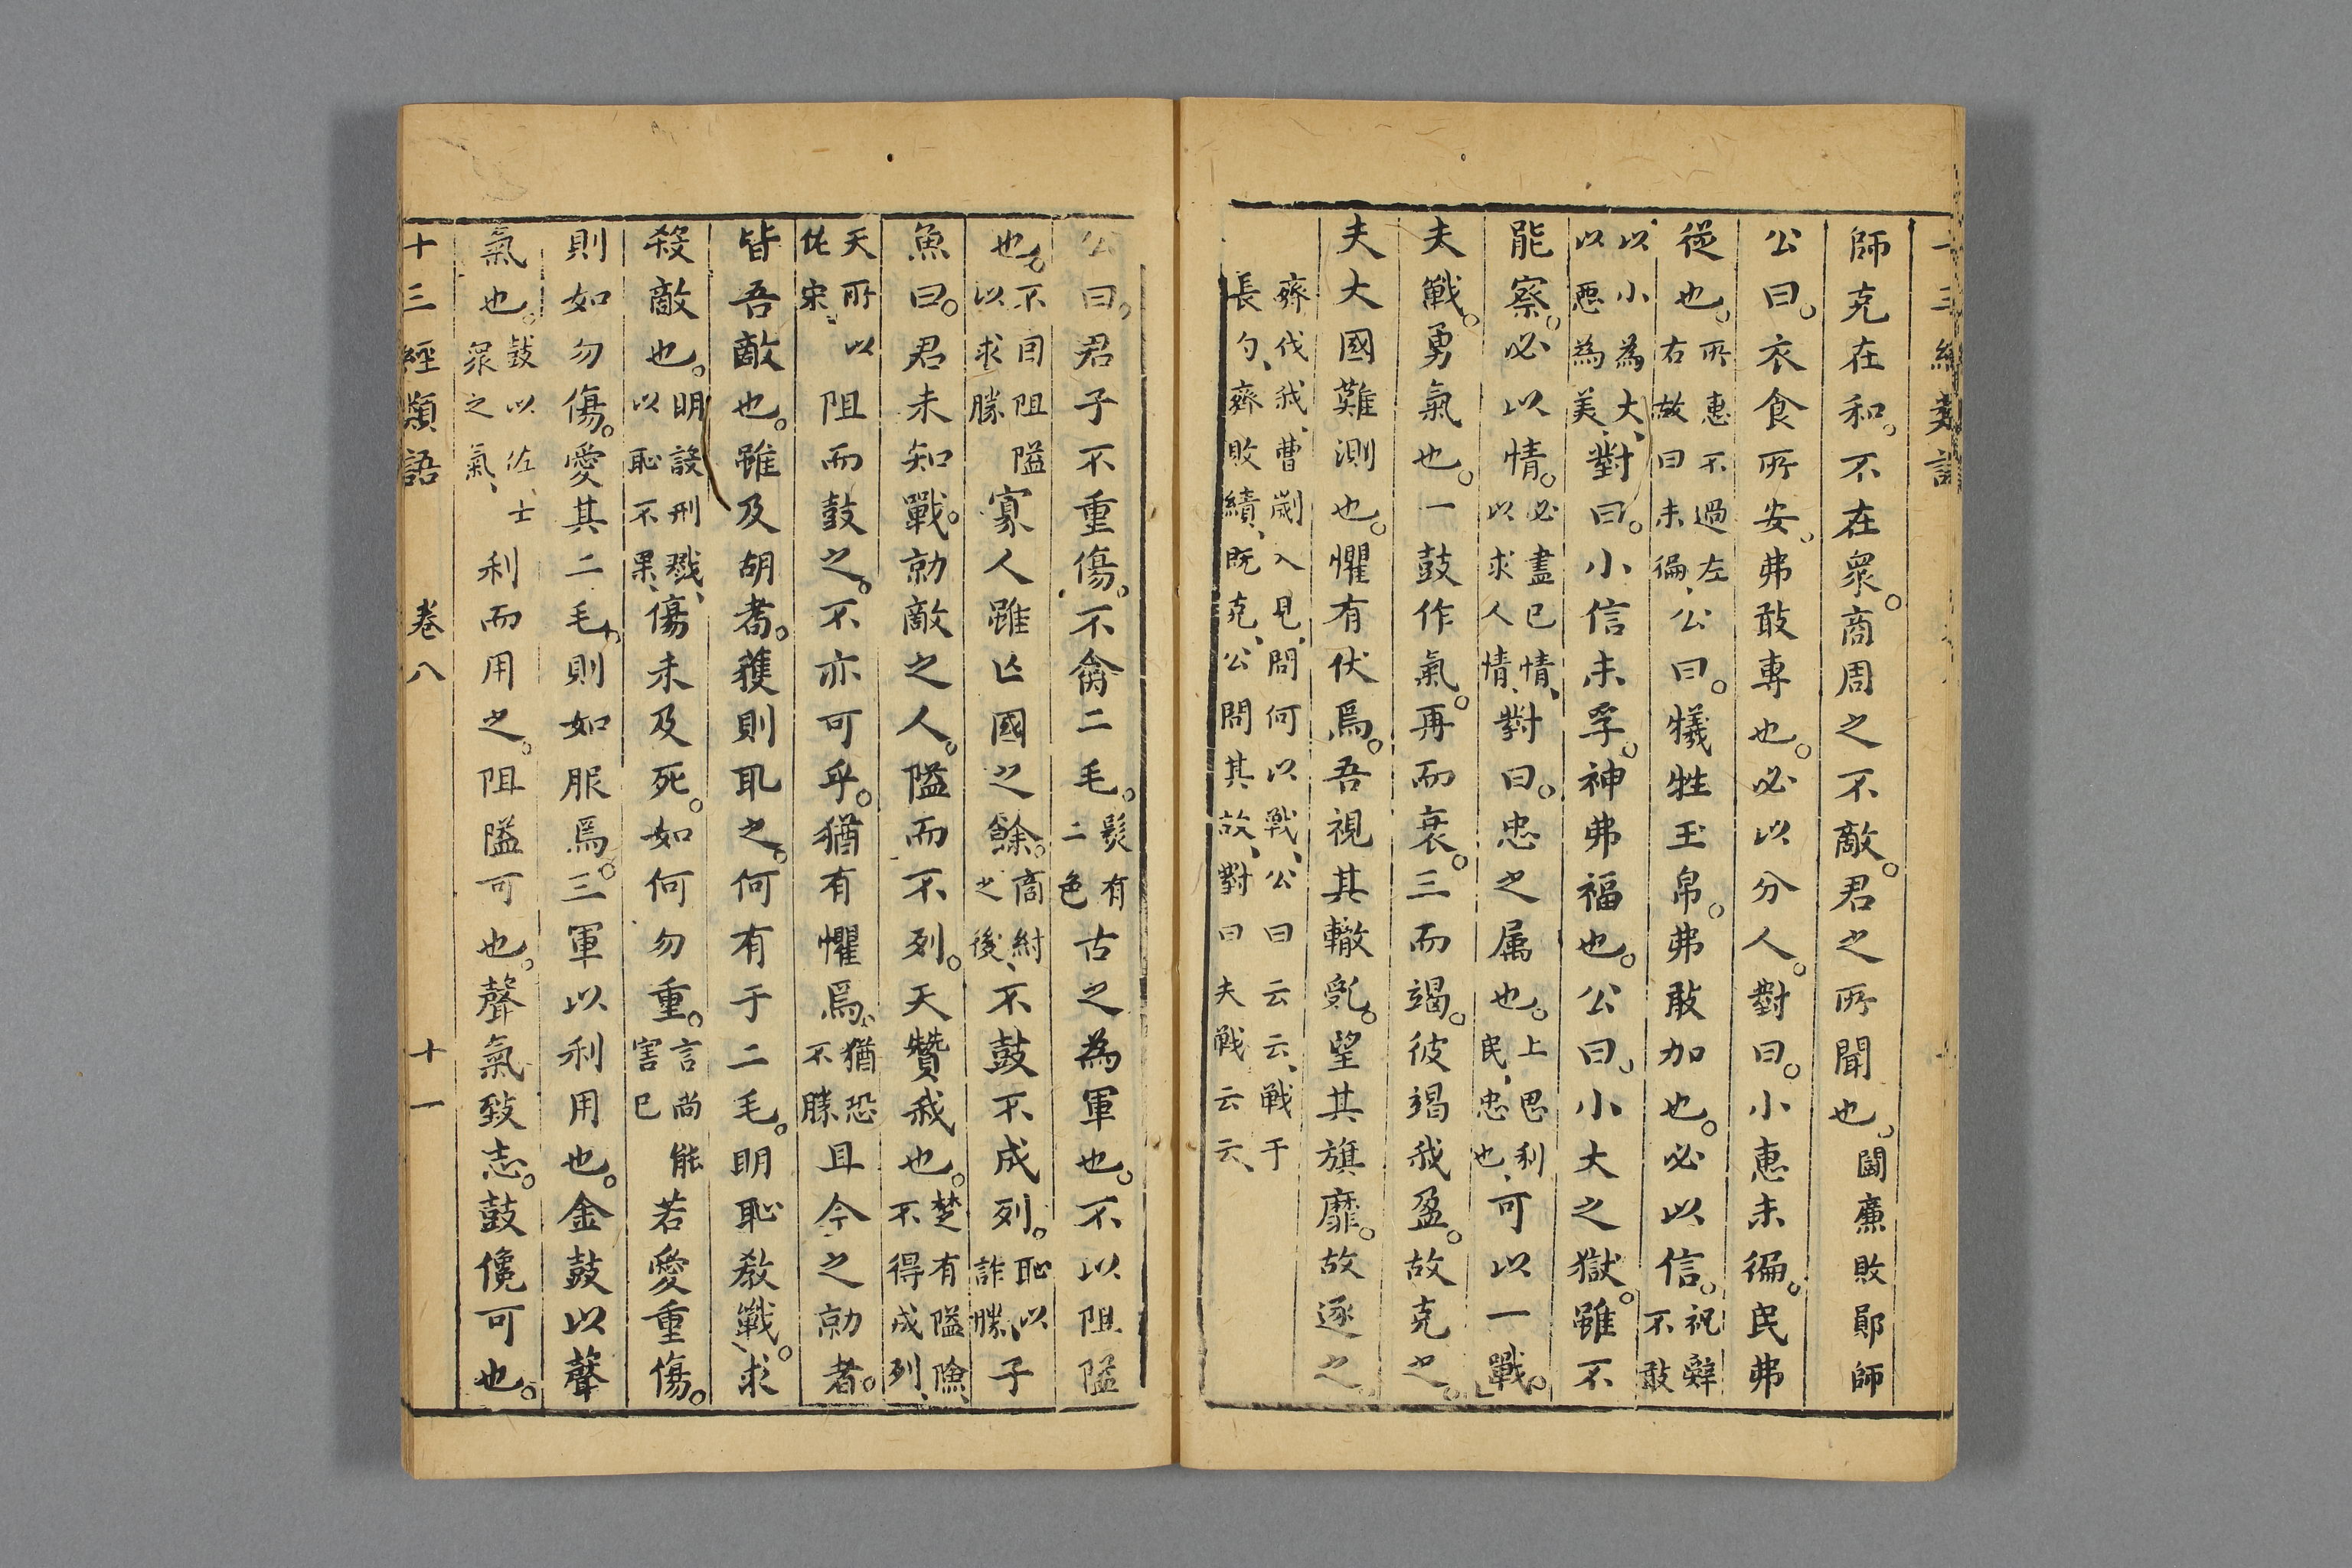 師克在和。不在衆。商周之不敵。君之所聞也。鬭廉敗鄖師
公曰。衣食所安。弗敢專也。必以分人。對曰。小惠未徧。民弗
從也。所惠不過左右故曰未徧、公曰。犧牲玉帛。弗敢加也。必以信。祝辭不敢
以小為大、以惡為美、對曰。小信未孚。神弗福也。公曰。小大之獄。雖不
能察。必以情。必盡已情、以求人情、對曰。忠之属也。上思利民、忠也、可以一戰。
夫戰。勇氣也。一鼓作氣。再而衰。三而竭。彼竭我盈。故克之。
夫大國難測也。懼有伏焉。吾視其轍亂。望其旗靡。故逐之。
齊伐我、曹劌入見、問何以戰、公曰云云、戰于
長勺、齊敗績、既克、公問其故、對曰夫戰云云、
公曰。君子不重傷。不禽二毛。髮有二色古之為軍也。不以阻隘
也。不因阻隘以求勝寡人雖亡國之餘。商紂之後、不鼓不成列。恥以詐勝、子
魚曰。君未知戰。勍敵之人。隘而不列。天贊我也。楚有隘險、不得成列、
天所以佐宋、阻而鼓之。不亦可乎。猶有懼焉。猶恐不勝且今之勍者。
皆吾敵也。雖及胡耇。獲則取之。何有于二毛。明恥教戰。求
殺敵也。明設刑戮、以恥不果、傷未及死。如何勿重。言尚能害已若愛重傷。
則如勿傷。愛其二毛。則如服焉。三軍以利用也。金鼓以聲
氣也。鼓以佐士衆之氣、利而用之。阻隘可也。聲氣致志。鼓儳可也。
十三經類語 卷八 十一